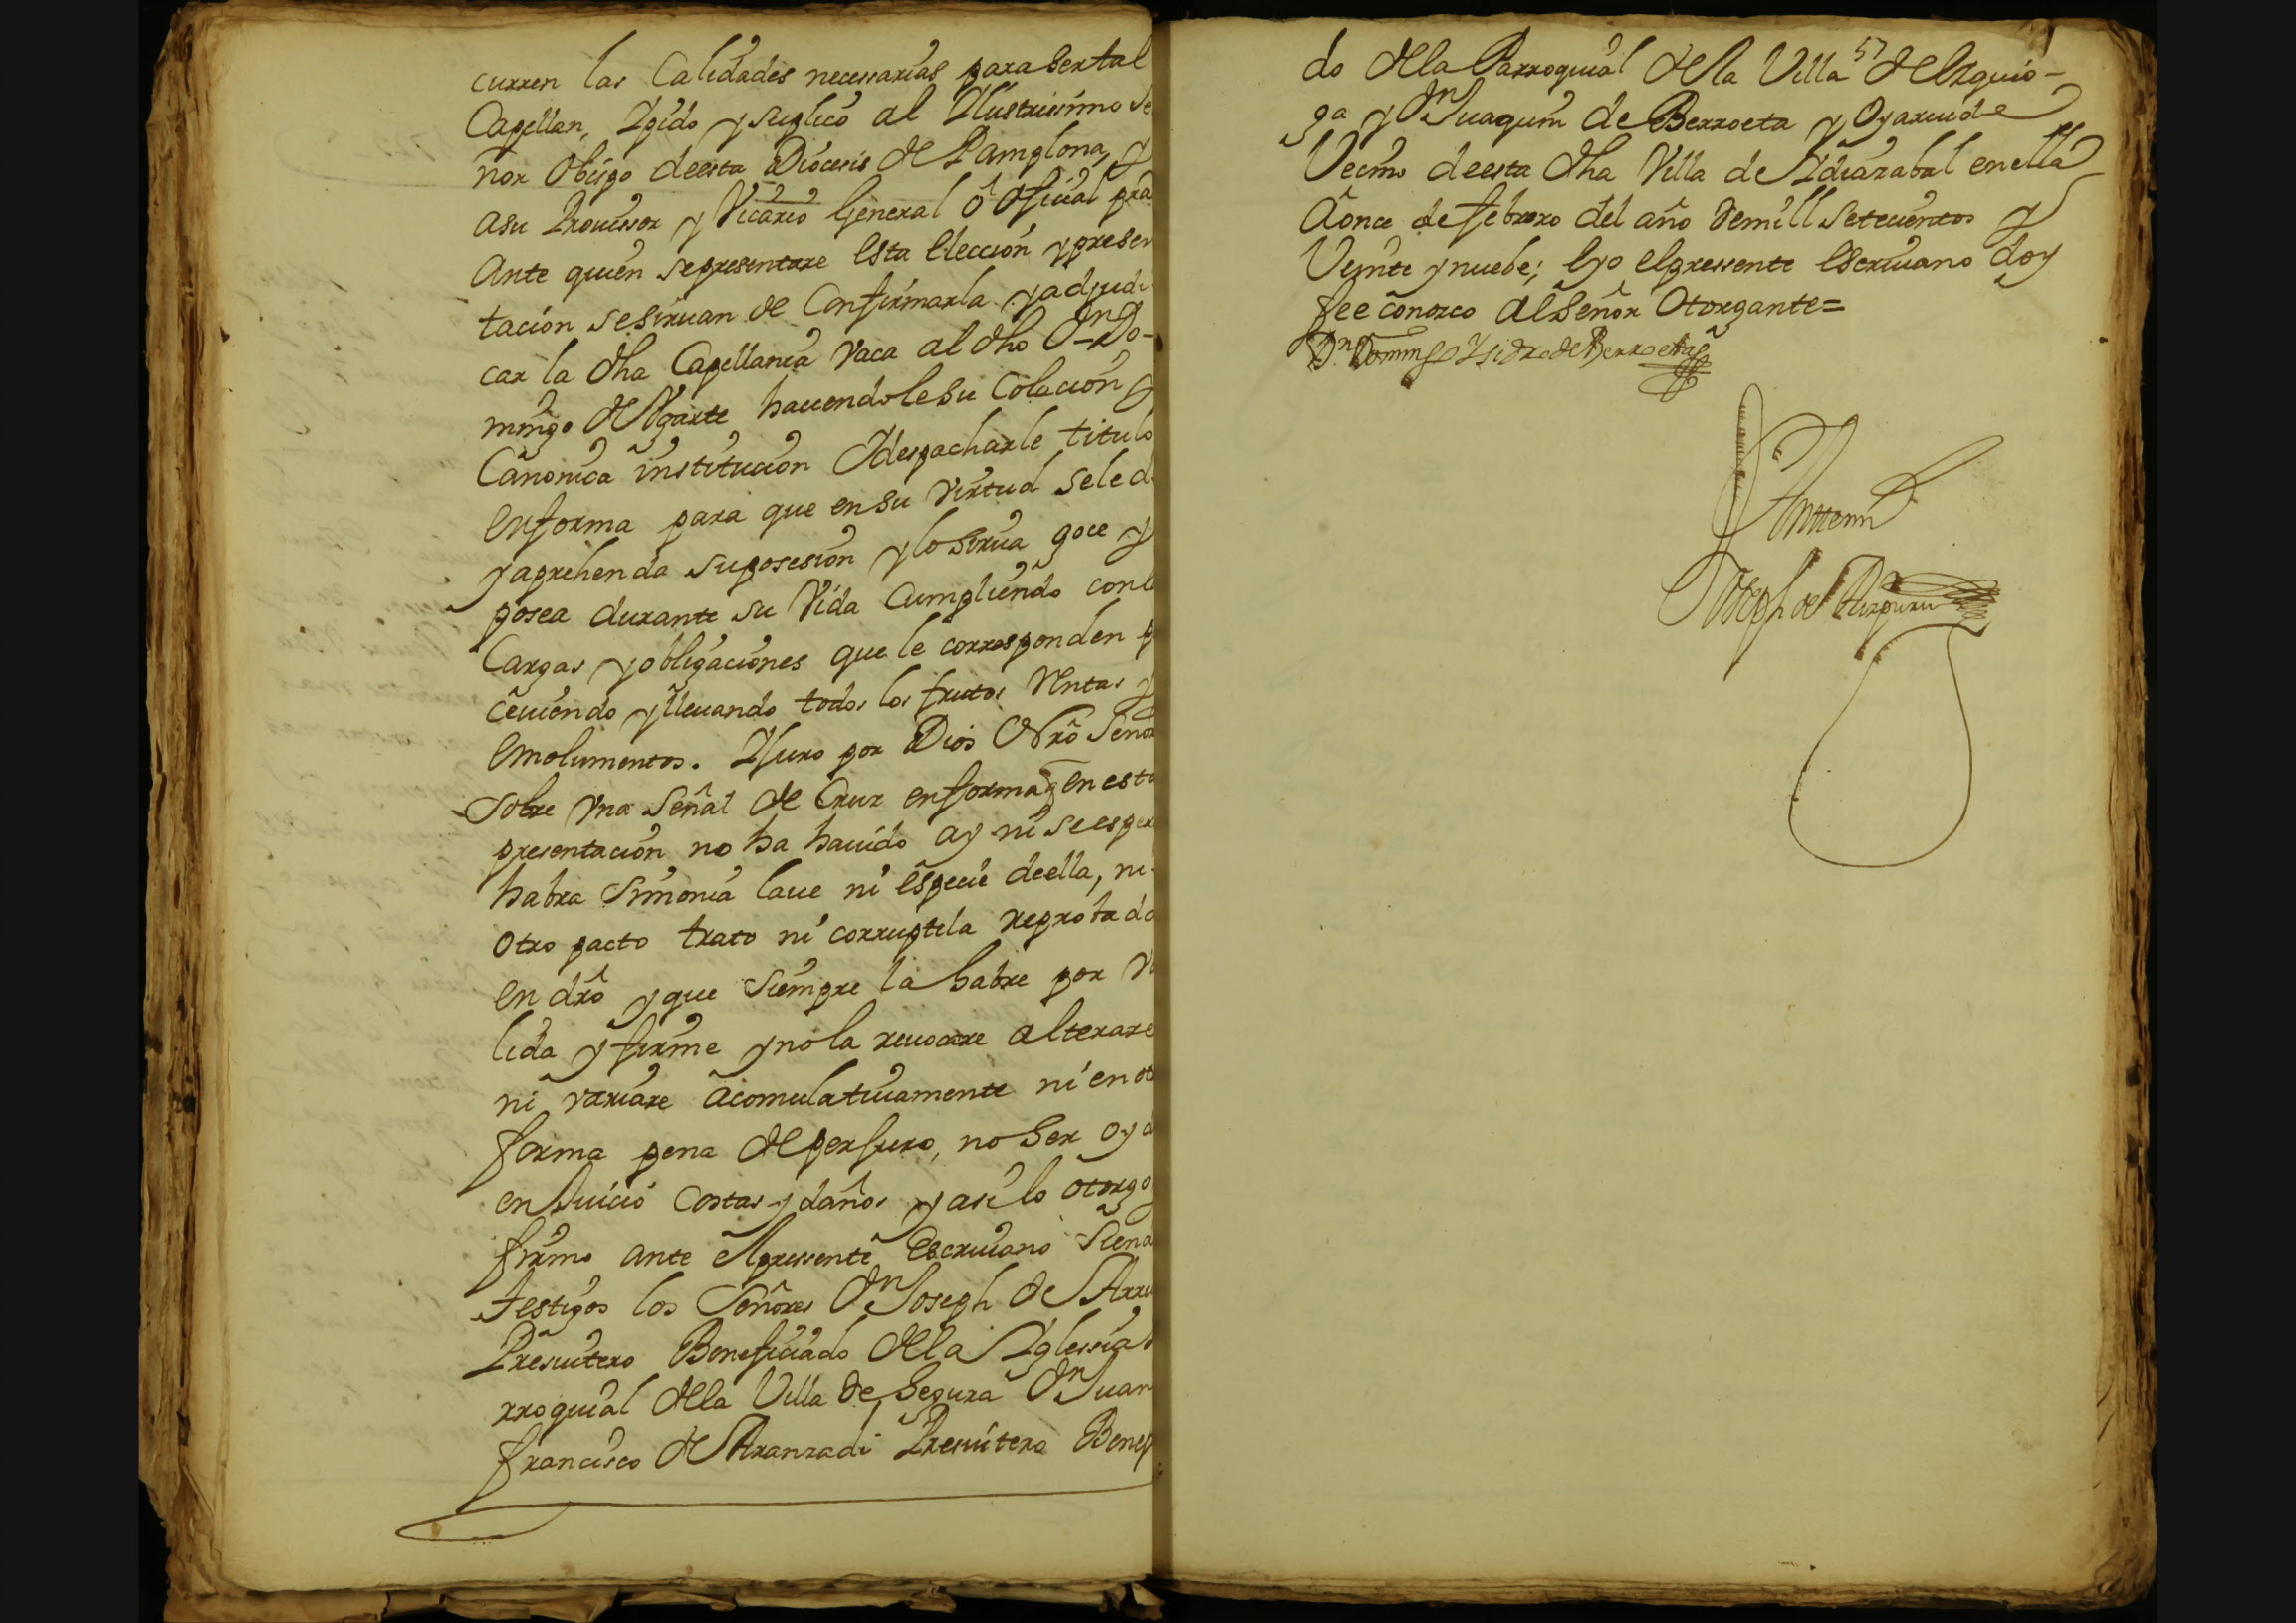 curren las Calidades necessarias para ser tal
Capellan, Ypido y suplico al Yllustrissimo Se
ñor Obispo de esta Diocesis de Pamplona, y
a su Prouissor y Vicario General ô Oficial pra
Ante quien se presentare esta eleccion y presen
tacion se siruan de Confirmarla y adjudi
car la dha Capellania vaca al dho Dn Do-
mingo de Vgarte haciendole su Colacion y
Canonica institucion Y despacharle titulo
en forma para que en su virtud se le d
y aprehenda su posesion y lo sirua goce y
posea durante su Vida Cumpliendo con l
Cargas y obligaciones que le corresponden p
ciuiendo y lleuando todos los frutos Rentas y
emolumentos. Y Juro por Dios Nrô Señor
sobre vna Señal de Cruz en forma q en esta
presentacion no ha hauido ay ni se esper
habra Simonia laue ni especie de ella, ni
otro pacto trato ni corruptela reprobado
en drô y que siempre la habre por va
lida y firme y no la reuocare alterare
ni variare acomulatiuamente ni en ot
forma pena de perjuro, no ser oyd
en Juicio costas y daños y asi lo otorgo
firmo ante el pressente Escriuano siend
testigos los Señores Dn Joseph de Arru
Presuitero Beneficiado de la Yglessia
rroquial de la Villa de Segura Dn Juan
francisco de Aranzadi Presuitero Benef
57
do de la Parroquial de la Villa de Ezquio-
ga y Dn Juaquin de Berroeta y Oyaruide
Vecino de esta dha Villa de Ydiazabal en ella
â once de febrero del año de mill setecientos y
Veinte y nuebe; e yo el pressente escriuano doy
fee conozco al Señor Otorgante=
Dn Domingo Ysidro de Berroeta
Antte mi
Joseph de Aizpuru